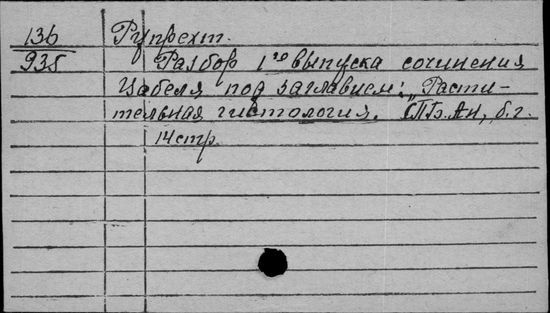 136 Рупрехт.
935 Разбор 1го выпуска сочинения
Цабеля под заглавием: „Расти-
тельная гистология. СПБ. АН, б.г.
14 стр.